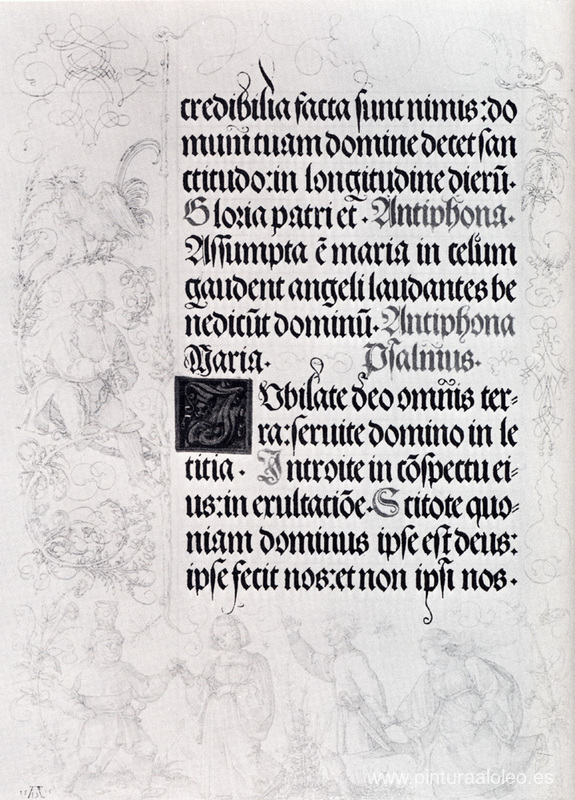 credibilia facta sunt nimis: do
mum tuam domine decet san
ctitudo: in longitudine dierū.
Gloria patri et. Antiphona.
Assumpta ē maria in celum
gaudent angeli laudantes be
nedicūt dominū. Antiphona
Maria. Psalmus.
IVbilate deo omnis ter-
ra: seruite domino in le
titia. Introite in cōspectu ei-
us: in exultatiōe. Scitote quo-
niam dominus ipse est deus:
ipse fecit nos: et non ipsi nos.
www.pinturaaloleo.es